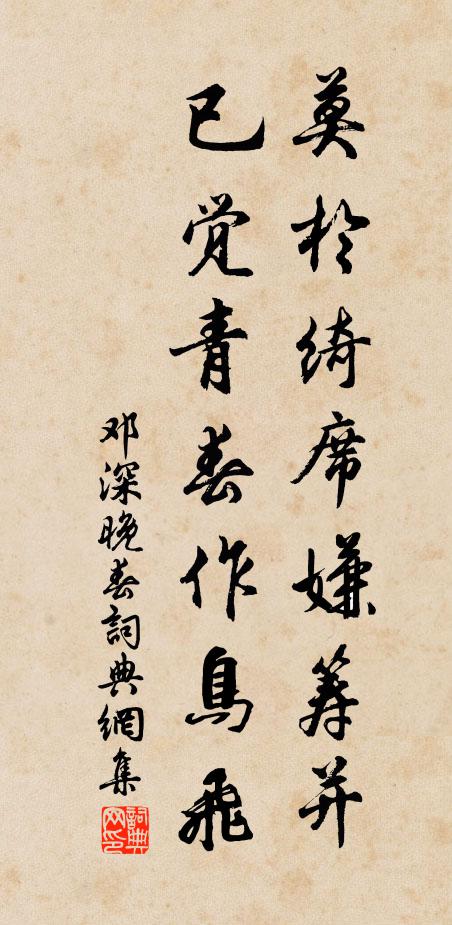 莫於绮席嫌筭并
已觉青春作鸟飞
邓深晚春词典網集
詞典网印